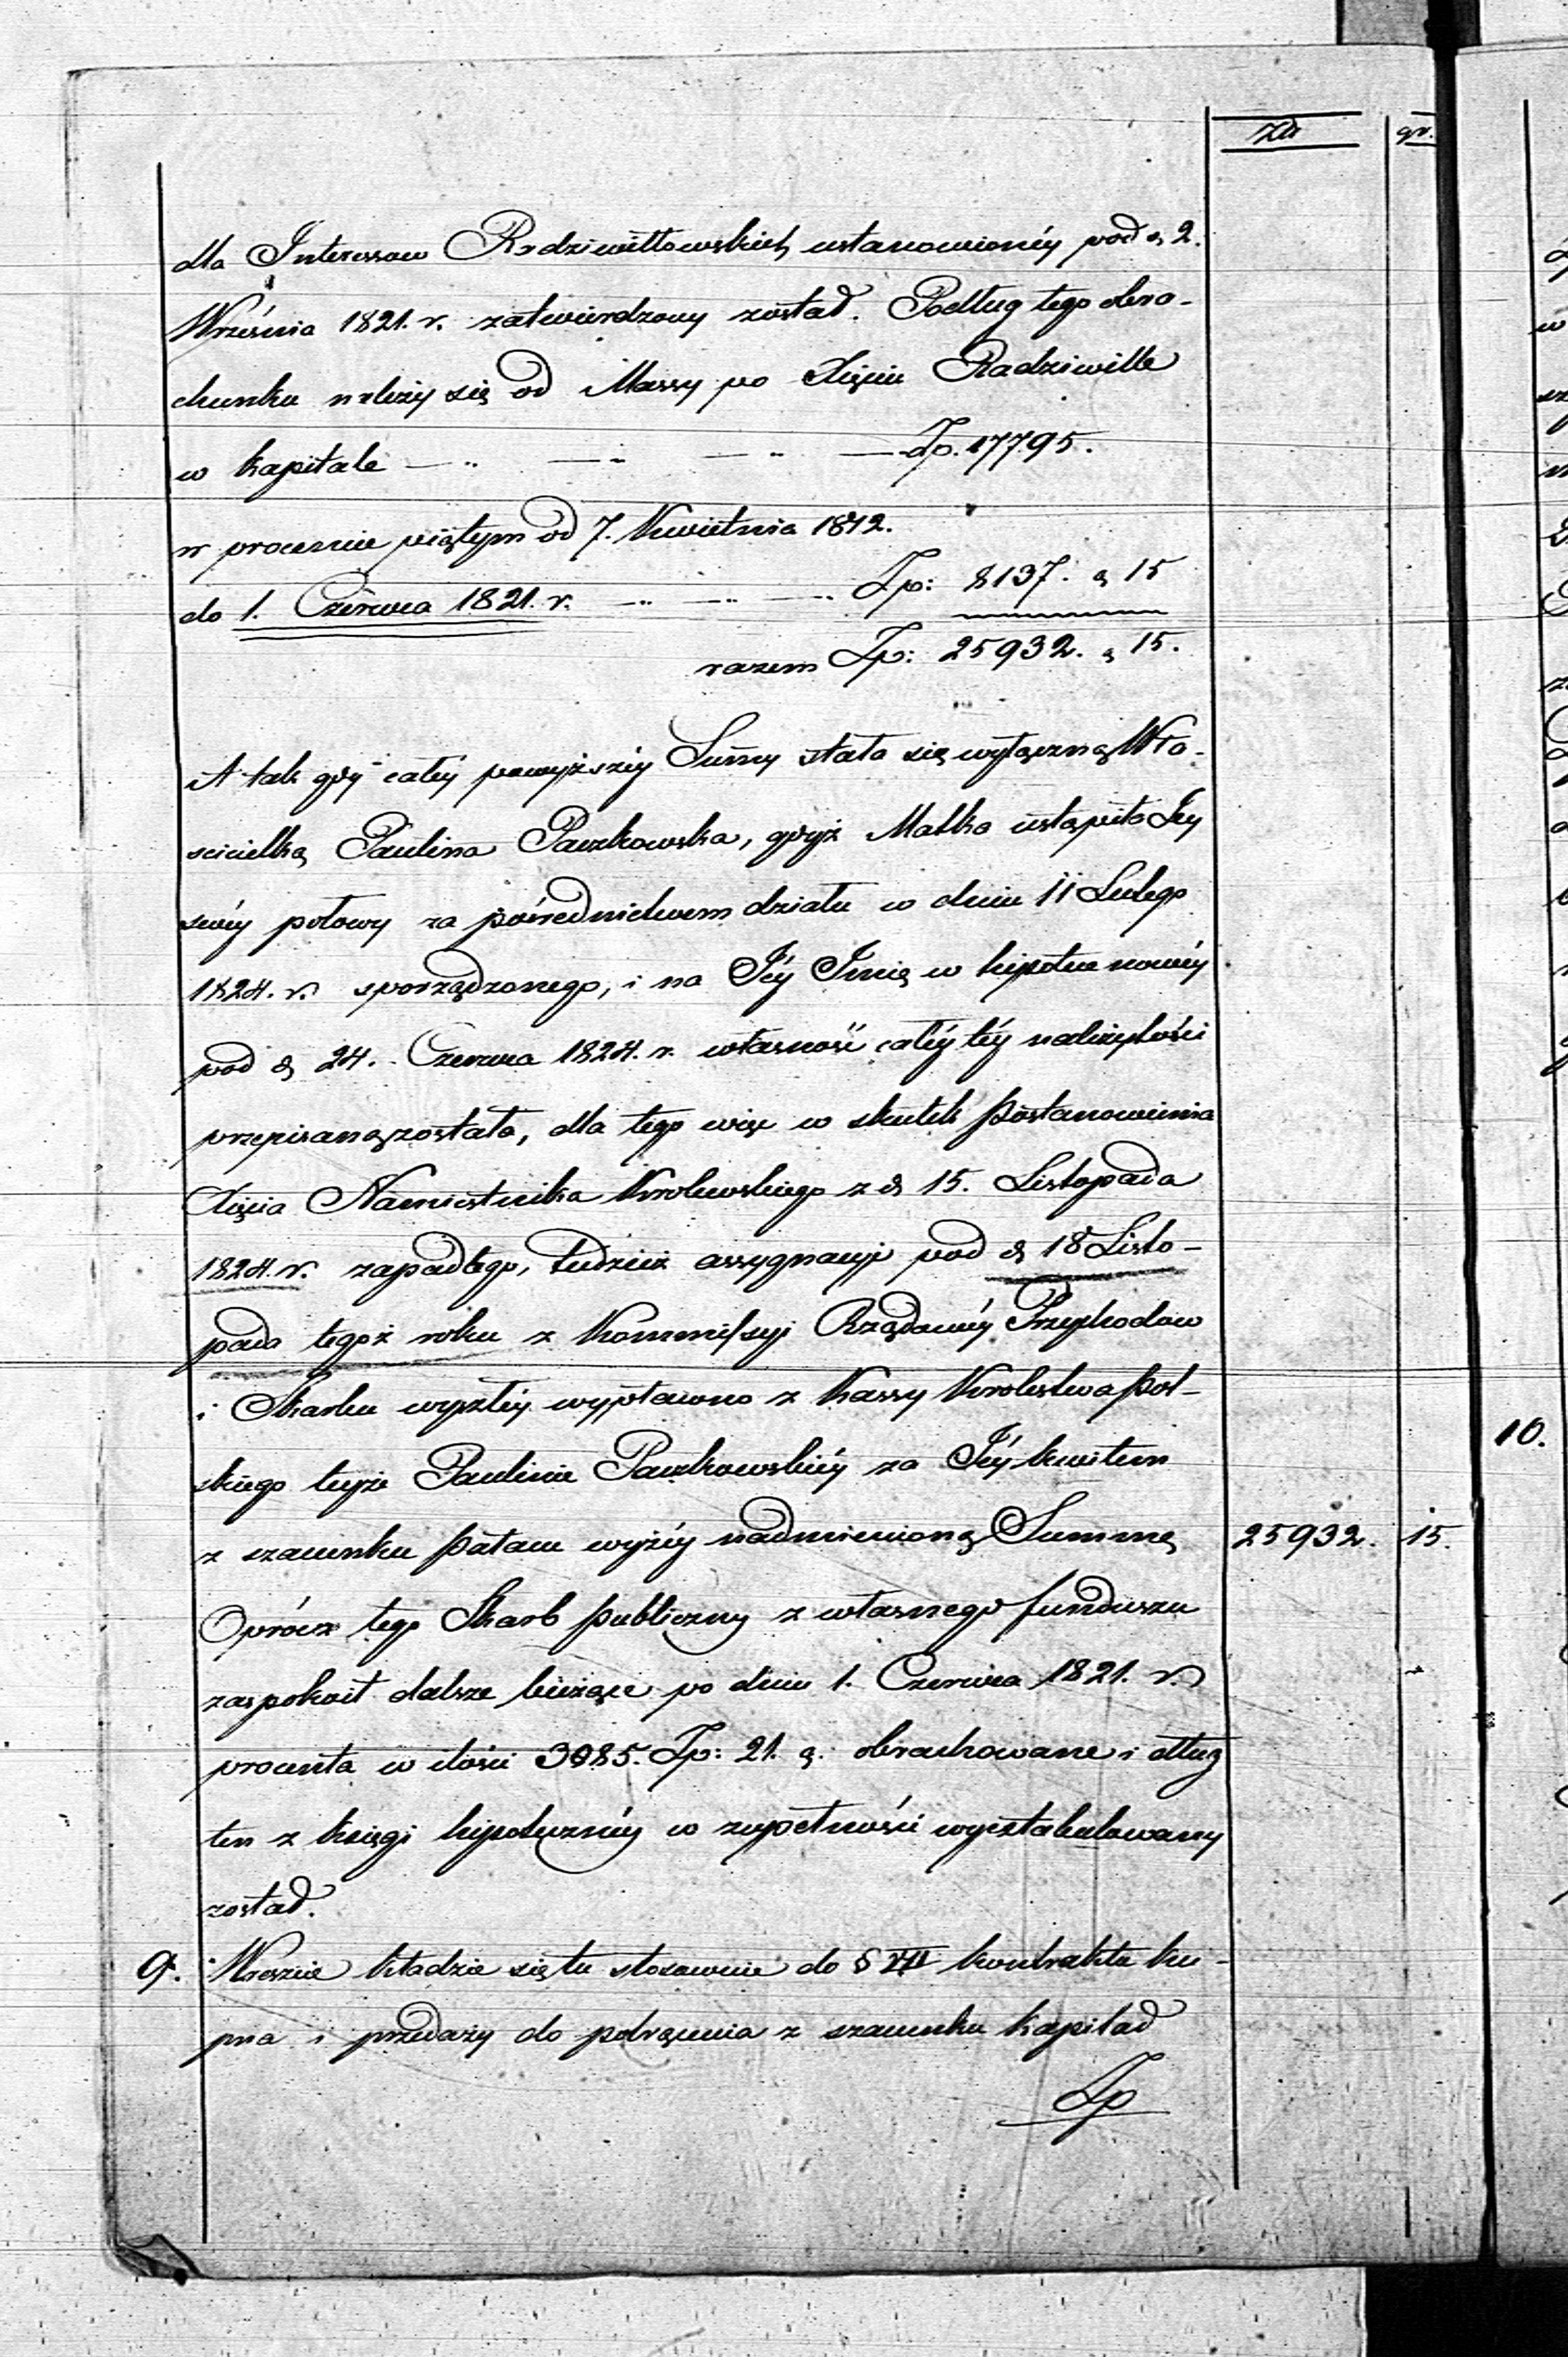 złł gr.
dla Interessow Radziwiłłowskich ustanowionéy pod d. 2.
Września 1821. r. zatwierdzony został. Podług tego obra-
chunku należy się od Massy po Xięciu Radziwille
w kapitale — .. — .. — .. — Zp. 17795.
w procencie piątym od 7. Kwietnia 1812.
do 1. Czerwca 1821. r. — .. — .. — .. Zp: 8137. g 15
razem Zp: 25932. g 15.
A tak gdy całey powyższey Summy stała się wyłączną Wła-
scicielką Paulina Paszkowska, gdyż Matka ustąpiła Jey
swéy połowy za pośrednictwem działu w dniu 11 Lutego
1824. r. sporządzonego, i na Jéy Imię w hipotece nowéy
pod d. 24. Czerwca 1824. r. własność całéy téy należytości
przepisaną została, dla tego więc w skutek Postanowienia
Xięcia Namiestnika Krolewskiego z d. 15. Listopada
1824. r. zapadłego, tudzież assygnacyi pod d. 18 Listo-
pada tegoż roku z Kommissyi Rządowéy Przychodow
i Skarbu wyszłéy wypłacono z Kassy Krolestwa Pol-
skiego teyże Paulinie Paszkowskiéy za Jéy kwitem
z szacunku Pałacu wyżéy nadmienioną Summę 25932. 15.
Oprócz tego Skarb Publiczny z własnego funduszu
zaspokoił dalsze bieżące po dniu 1. Czerwca 1821. r.
procenta w ilości 3085. Zp: 21. g. obrachowane i dług
ten z księgi hipoteczney w zupełności wyextabulowany
został.
9. Wreszcie kładzie się tu stosownie do § VII kontraktu ku-
pna i przedaży do potrącenia z szacunku kapitał
Zp
10.